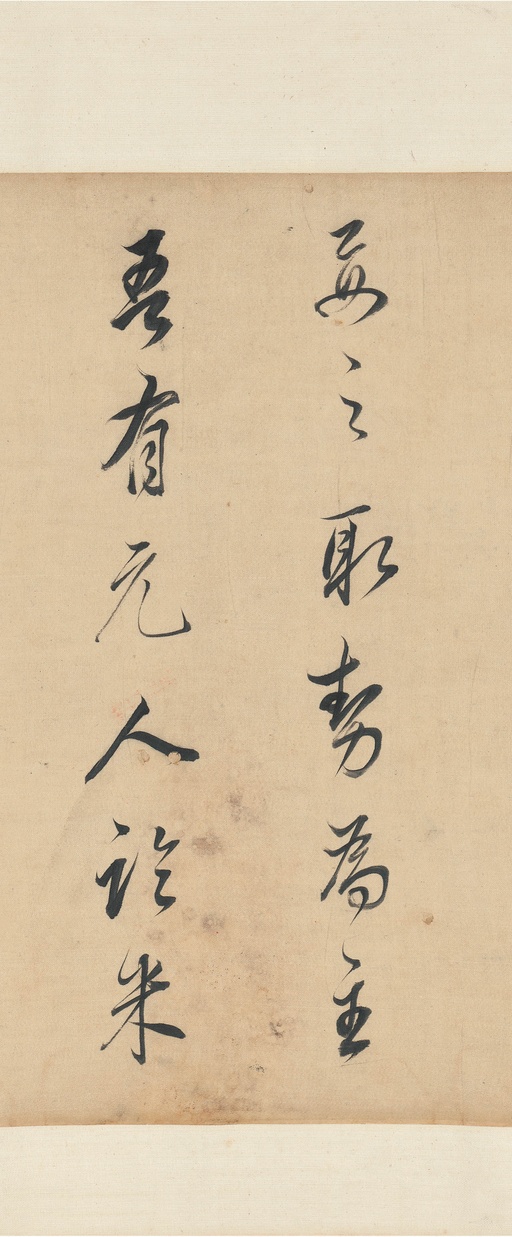 要之取勢為主
吾有元人論米